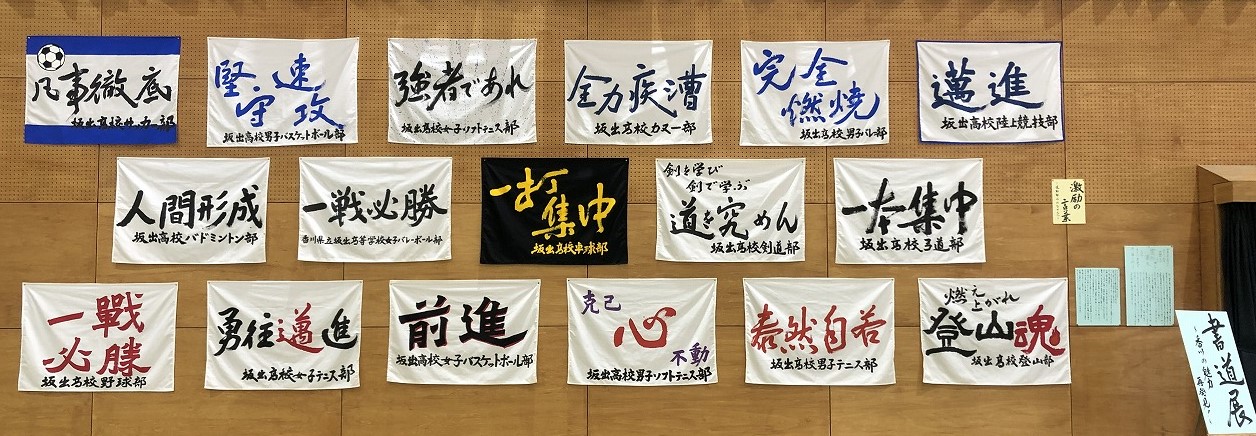 凡事徹底
坂出高校サッカー部
堅守
速攻
坂出高校男子バスケットボール部
強者であれ
坂出高校女子ソフトテニス部
全力疾漕
坂出高校カヌー部
完全
燃焼
坂出高校男子バレー部
邁進
坂出高校陸上競技部
人間形成
坂出高校バドミントン部
一戦必勝
香川県立坂出高等学校女子バレーボール部
一打
集中
坂出高校卓球部
剣を学び
剣で学ぶ
道を究めん
坂出高校剣道部
一本集中
坂出高校弓道部
激励の
言葉
一戰
必勝
坂出高校野球部
勇往邁進
坂出高校女子テニス部
前進
坂出高校女子バスケットボール部
克己
心
不動
坂出高校男子ソフトテニス部
泰然自若
坂出高校男子テニス部
燃え
上がれ
登山魂
坂出高校登山部
書道展
香川の魅力
再発見